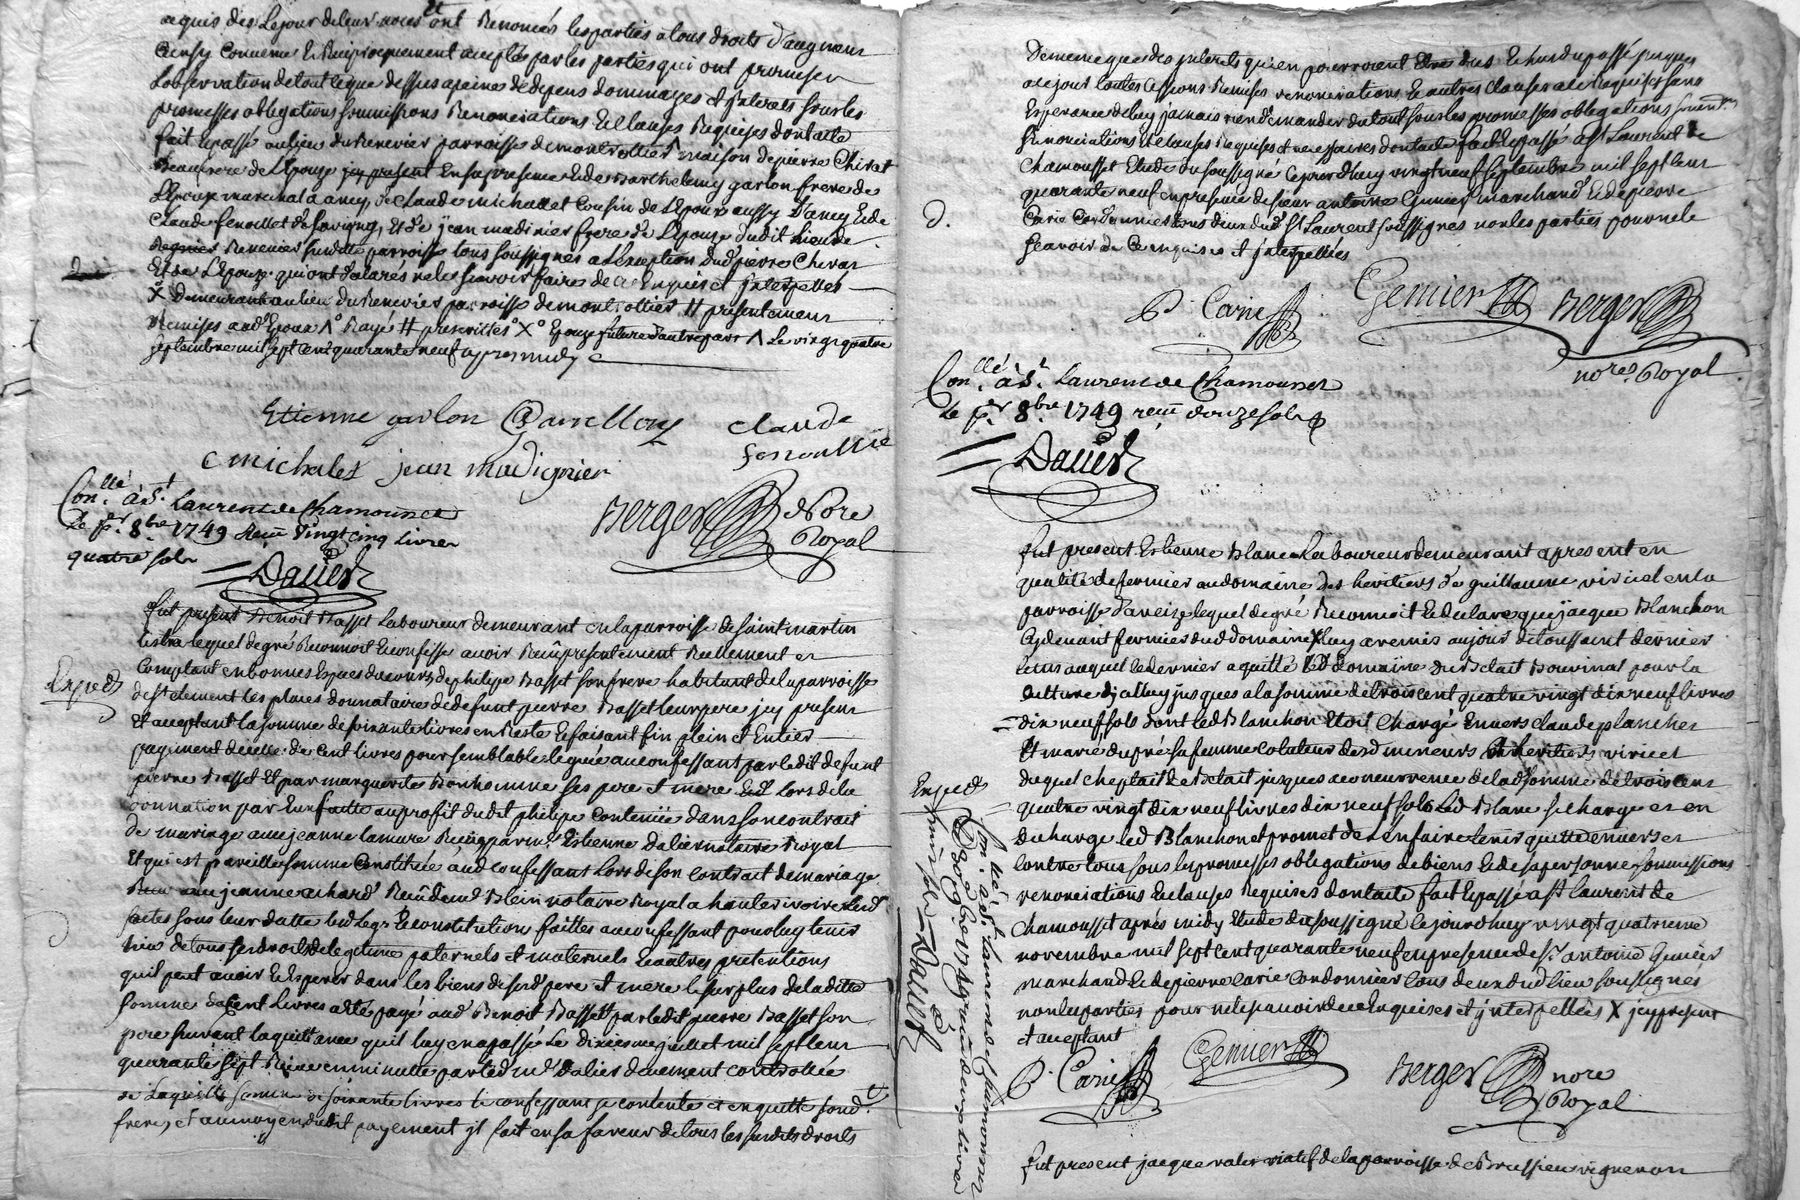 acquis des Le jour de leur noces et ont Renoncés les parties a tous droits d'augment
Ainsy Convenu et Reciproquement acceptés par les parties qui ont promis en
L'observation de tout ce que dessus a peine de depens dommages et jnterets sous les
promesses obligations soumissions Renonciations et clauses Requises dont acte
fait et passé au lieu du Renevier parroisse de montrottier maison de pierre Chirat
Beaupere de L'Epouze jcy present En sa presence et de Barthelemy garlon frere de
L'Epoux marechal a ancy, de Claude michallet Cousin de L'Epoux aussy d'ancy et de
Claude fenoillet de Savigny, et de jean madinier frere de L'Epouze dudit Lieu de
Renevier susdite parroisse tous soussignés a L'exception dud. pierre Chirat
Et de L'Epouze qui ont declarés ne le scavoir faire de ce Enquis et jnterpellés
X Demeurant au lieu du Renevier parroisse de montrottier # presentement
Remises aud. Epoux /\ Rayé # prescrittes X Epouze future d'autre part /\ Le vingt quatre
septembre mil sept cent quarante neuf apres midy
Etienne garlon Claude
C michalet jean madignier
Berger Nore
Royal
Con.llé à St. Laurent de Chamousset
Le pr. 8bre 1749 Receu Vingt cinq Livres
quatre sols
Dauet
fut present Benoit Basset Laboureur demeurant en la parroisse de Saint martin
lequel de gré Reconnoit et confesse avoir Receu presentement Reellement et
Comptant en bonnes Especes du cours de philipe Basset son frere habitant de la parroisse
de St Clement les places donnataire de defunt pierre Basset leur pere jcy present
Et acceptant La somme de soixante livres en Reste et faisant fin plein et Entier
payement de celle de Cent livres pour semblable leguée au confessant par ledit defunt
pierre Basset Et par marguerite Bonhomme ses pere et mere lors de la
donnation par Eux faitte au profit dudit philipe Contenüe dans son contrait
de mariage avec jeanne lamure Receu par Estienne Dalier notaire Royal
Et qui est pareille somme Constituée aud. confessant Lors de son Contrait de mariage
avec jeanne achard Receu Blein notaire Royal a haute rivoire
faites sous leur datte lesd. Legs et constitution faittes au confessant pour luy tenir
lieu de tous ses droits de legitime paternels et maternels et autres pretentions
quil peut avoir et Esperer dans les biens de sesd. pere et mere le surplus de la ditte
somme de Cent Livres a eté payé aud. Benoit Basset par ledit pierre Basset son
pere suivant la quittance qu'il luy en a passé Le dixieme juillet mil sept cent
quarante sept Receue en minutte par led. Me. Dalier deuement controllée
de laquelle somme de soixante livres le confessant se contente et en quitte sond.
frere, et au moyen dudit payement jl fait en sa faveur de tous les susdits droits
Exped.
De meme que des jnterets qui en pourroient Etre dus Echus du passé jusques
a ce jour toutes cessions Remises renonciations et autres clauses a ce Requises sans
Esperance de luy jamais rien demander du tout sous les promesses obligations soumons
Renonciations et clauses Requises et necessaires dont acte fait et passé a St Laurent de
Chamousset Etude du soussigné Ce jourd'huy vingt neuf septembre mil sept cent
quarante neuf en presence de sieur antoine Gemier marchand et de pierre
Carie Cordonnier tous deux dud. St Laurent soussignés non les parties pour ne le
scavoir de Ce enquises et jnterpellées
P. Carie Gemier Berger
nore. Royal
Con.llé à St. Laurent de Chamousset
Le pr. 8bre 1749 receu douze sols
Dauet
fut present Estienne Blanc Laboureur demeurant a present en
qualité de fermier au domaine des heritiers de guillaume viricel en la
parroisse d'aveize lequel de gré Reconnoit et declare que jacque Blanchon
Cy devant fermier dud. domaine X luy a remis au jour de toussaint dernier
tems auquel le dernier a quitté led. Domaine du Betail Bouvinat pour la
culture d'icelluy jusques a la somme de trois cent quatre vingt dix neuf livres
dix neuf sols dont led. Blanchon Etoit Chargé Envers claude plancher
Et marie dupré sa femme tuteurs desd. mineurs heritiers viricel
Duquel cheptait de Betait jusques a concurrence de lad. somme de trois cent
quatre vingt dix neuf livres dix neuf sols Led. Blanc se charge et en
decharge led. Blanchon et promet de L'en faire tenir quitte envers et
contre tous sous les promesses obligations de biens et de sa personne soumissions
renonciations et clauses Requises dont acte fait et passé a St laurent de
Chamousset aprés midy Etude du soussigné Ce jourd'huy vingt quatrieme
novembre mil sept cent quarante neuf en presence de Sr. antoine Gemier
marchand et de pierre Carie Cordonnier tous deux dud. lieu soussignés
non les parties pour ne le scavoir de ce Enquises et jnterpellées X jcy present
et acceptant
P. Carie Gemier Berger nore
Royal
Exped.
Con.llé à St. Laurent de Chamousset
Dauet
fut present jacque valer natif de la parroisse de Brussieu vigneron